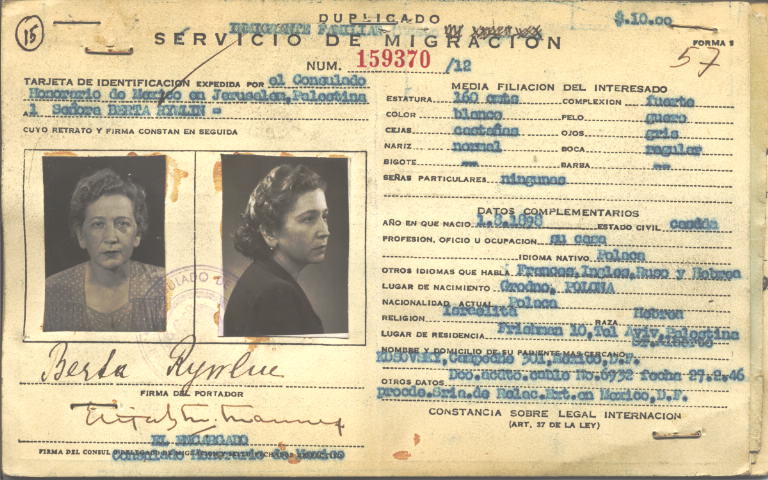 15
DUPLICADO
$.10.00
INMIGRANTE FAMILIAR
SERVICIO DE MIGRACION
FORMA 5
57
NUM. 159370 /12
TARJETA DE IDENTIFICACION EXPEDIDA POR el Consulado
Honorario de Mexico en Jerusalen, Palestina
A l Señora BERTA RYWLIN =
CUYO RETRATO Y FIRMA CONSTAN EN SEGUIDA
Berta Rywlin
FIRMA DEL PORTADOR
EL ENCARGADO
Consulado Honorario de Mexico
MEDIA FILIACION DEL INTERESADO
ESTATURA 160 cmts COMPLEXION fuerte
COLOR blanco PELO guero
CEJAS castañas OJOS gris
NARIZ normal BOCA regular
BIGOTE -- BARBA --
SEÑAS PARTICULARES ningunas
DATOS COMPLEMENTARIOS
AÑO EN QUE NACIO 1.8.1898 ESTADO CIVIL
PROFESION, OFICIO U OCUPACION su casa
IDIOMA NATIVO Polaca
OTROS IDIOMAS QUE HABLA Frances, Ingles, Ruso y Hebrea
LUGAR DE NACIMIENTO Grodno, POLONA
NACIONALIDAD ACTUAL Polaca
RELIGION Israelita RAZA Hebrea
LUGAR DE RESIDENCIA Frishman 10, Tel Aviv, Palestina
NOMBRE Y DOMICILIO DE SU PARIENTE MAS CERCANO Sr. Alberto
KOSOVSKY, Campeche 301, Mexico, D.F.
OTROS DATOS Doc. acdto. cablo No. 6932 fecha 27.2.46
procde. Sria. de Relac. Ext. en Mexico, D.F.
CONSTANCIA SOBRE LEGAL INTERNACION
(ART. 37 DE LA LEY)